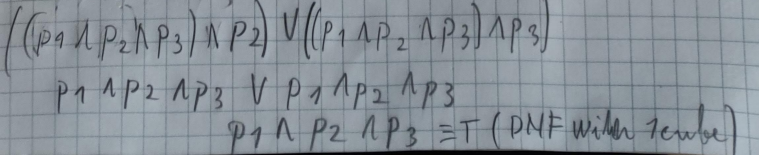 ((p1 ∧ p2 ∧ p3) ∧ p2) ∨ ((p1 ∧ p2 ∧ p3) ∧ p3)
p1 ∧ p2 ∧ p3 ∨ p1 ∧ p2 ∧ p3
p1 ∧ p2 ∧ p3 ≡ T (DNF with 1 cube)